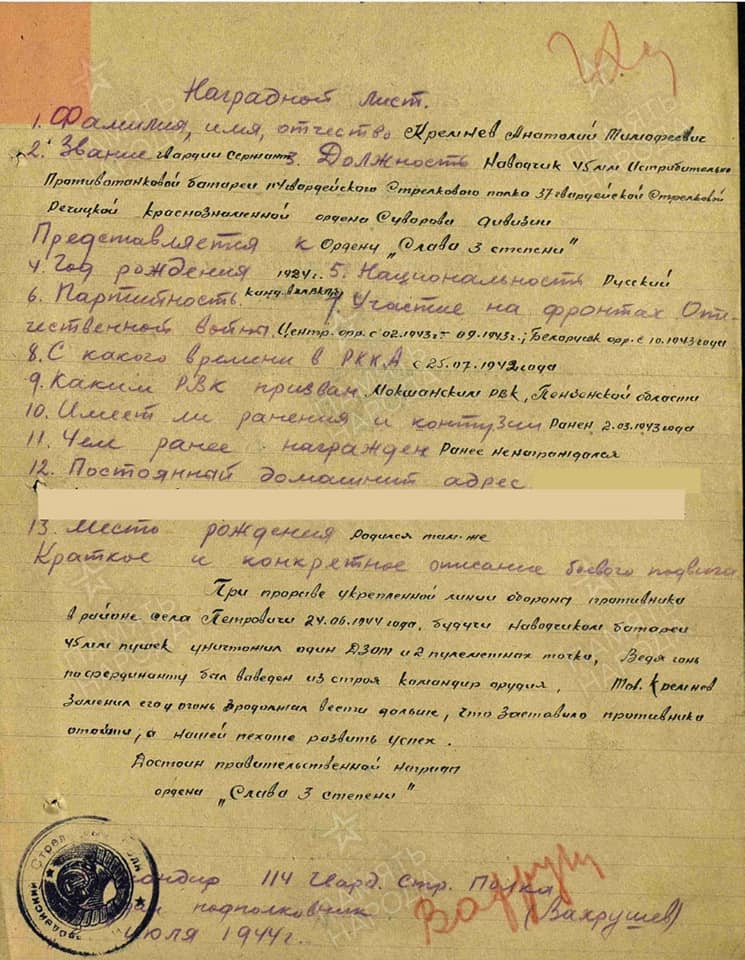 Наградной лист.
1. Фамилия, имя, отчество Кремнев Анатолий Тимофеевич
2. Звание Гвардии Сержант 3. Должность Наводчик 45мм Истребительно
Противотанковой батареи 114 Гвардейского Стрелкового полка 37 гвардейской Стрелковой
Речицкой краснознаменной ордена Суворова дивизии
Представляется к Ордену „Слава 3 степени"
4. Год рождения 1924г. 5. Национальность Русский
6. Партитность канд. 7 Участие на фронтах Оте-
чественной войны. Центр. фр. с 02.1943г. - 09.1943г.; Белорусск фр. с 10.1943 года
8. С какого времени в РККА с 25.07.1942 года
9. Каким РВК призван Мокшанским РВК, Пензенской области
10. Имеет ли ранения и контузии Ранен 2.03.1943 года
11. Чем ранее награжден Ранее ненаграждался
12. Постоянный домашнит адрес
13. Место рождения родился там-же
Краткое и конкретное описание боевого подвига
При прорыве укрепленной линии обороны противника
в районе села Петровичи 24.06.1944 года, будучи наводчиком батареи
45мм пушек уничтожил один ДЗОТ и 2 пулеметных точки, Ведя гонь
по был выведен из строя командир орудия, Тов. Кремнев
Заменил его и огонь продолжал вести дальше, что заставило противника
отойти, а нашей пехоте развить успех.
Достоин правительственной награды
ордена „Слава 3 степени"
114 Гвард. Стр. Полка
подполковник (Вахрушев)
июля 1944г.